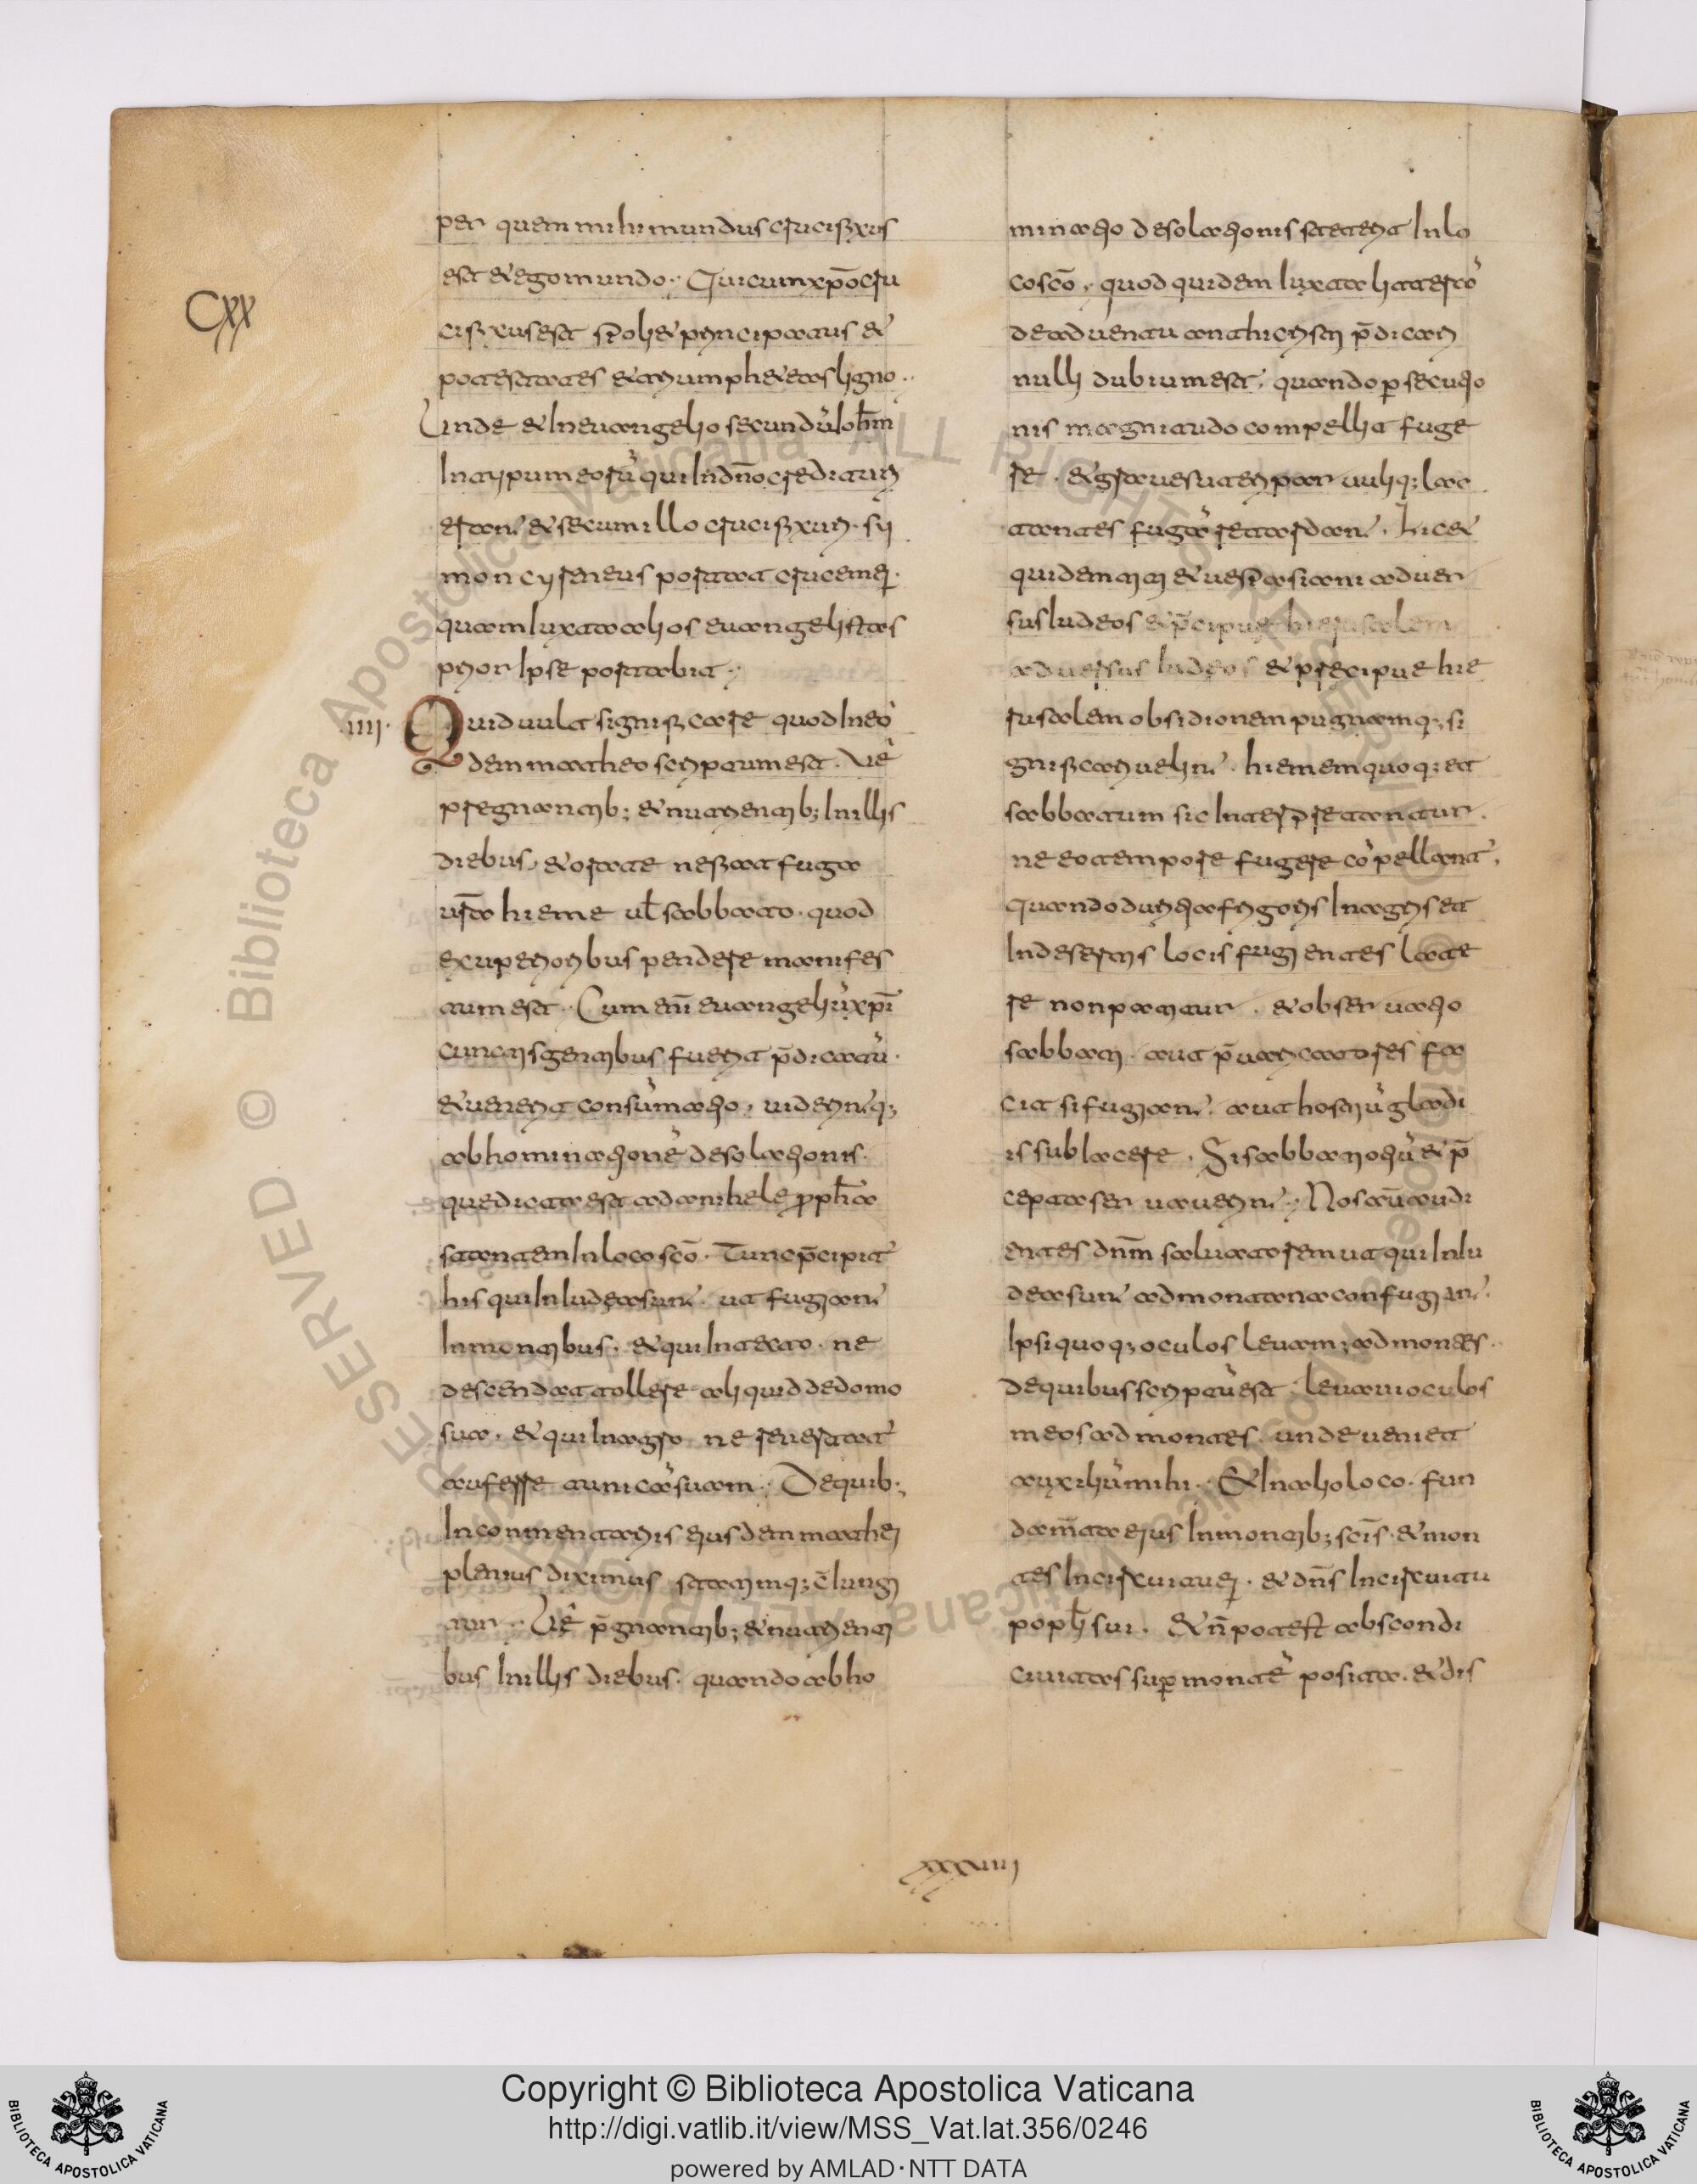 CXX
per quem mihi mundus crucifixus
est & ego mundo. Qui cum xp̄o cru
cifixus est spoli& principatus &
potestates & triumph& eos ligno.
Unde & in euangelio secundū ioh̄m
in typum eorū qui in dn̄o credituri
erant & secum illo crucifixuri. sy
mon cyreneus portat crucem ei.
quam iuxta alios euangelistas
prior ipse portabit.
.iiii. Quid uult significare quod in eo
dem matheo scriptum est. Ue
pregnantib; & nutrientib; in illis
diebus. & orate ne fiat fuga
uestra hieme ul̄ sabbato. quod
ex superioribus pendere manifes
tum est. Cum enī euangeliū xp̄i
cunctis gentibus fuerit p̄dicatū.
& uenerit consūmatio. uiderintq;
abhominationē desolationis.
que dicta est ad anihele proph̄a
stantem in loco sc̄o. Tunc p̄cipit
his qui in iudea sunt. ut fugiant
in montibus. & qui in tecto. ne
descendat tollere aliquid de domo
sua. & qui in agro ne reuertat
auferre tunicā suam. De quib;
in commentariis eiusdem mathei
plenius diximus statimq; c̄iungi
tur. Ue p̄gnantib; & nutrienti
bus in illis diebus. quando abho
minatio desolationis steterit in lo
co sc̄o. quod quidem iuxta litterā
de aduentu antichristi p̄dicari
nulli dubium est. quando p̱secutio
nis magnitudo compellit fuge
re. & graues uteri paruuliq; lac
tantes fugā retardant. Lic&
quidem titi & uespasiani aduer
sus iudeos & p̄cipue hierusalem
aduersus iudeos & precipue hie
rusalem obsidionem pugnamq; si
gnificari uelint. hiemem quoq; et
sabbatum sic interpretantur.
ne eo tempore fugere cōpellant.
quando duritia frigoris in agris et
in desertis locis fugientes late
re non patitur. & obseruatio
sabbati. aut p̄uaricatores fa
cit si fugiant. aut hostiū gladi
is sublacere. Si sabbati otiū & p̄
cepta seruauerint. Nos autē audi
entes dn̄m saluatorem ut qui in iu
dea sunt ad montana confugiant.
Ipsi quoq; oculos leuam; ad montes.
de quibus scriptū est. leuaui oculos
meos ad montes. unde ueniet
auxiliū mihi. & in alio loco. fun
dam̄ta eius in montib; sc̄is. & mon
tes in circuitu ei. & dn̄s in circuitu
popl̄i sui. & n̄ potest abscondi
ciuitas sup̱ montē posita. & dis
xxxiiii
Copyright © Biblioteca Apostolica Vaticana
http://digi.vatlib.it/view/MSS_Vat.lat.356/0246
powered by AMLAD·NTT DATA